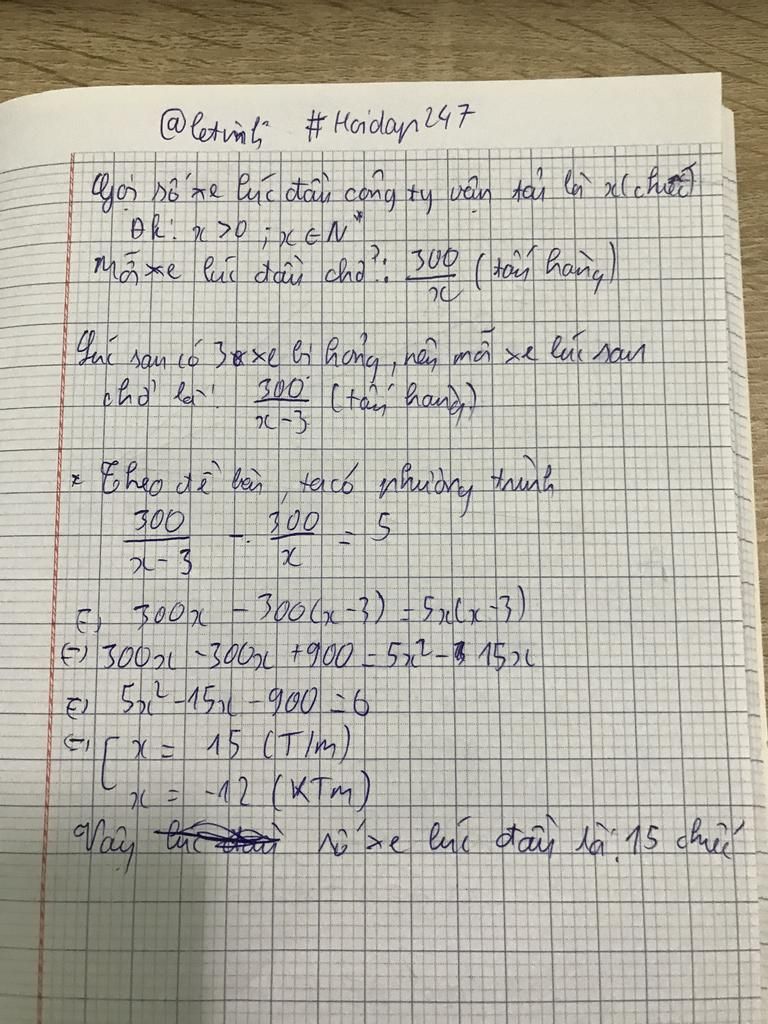 @letinh #Hoidap247
Gọi số xe lúc đầu công ty vận tải là x(chiếc)
Đk: x >0 ; x ∈ N*
Mỗi xe lúc đầu chở: 300/x (tấn hàng)
Lúc sau có 3 xe bị hỏng, nên mỗi xe lúc sau
chở là: 300/(x-3) (tấn hàng)
* Theo đề bài, ta có phường trình
300/(x-3) - 300/x = 5
(=) 300x - 300(x-3) = 5x(x-3)
(=) 300x - 300x + 900 = 5x² - 15x
(=) 5x² - 15x - 900 = 0
(=) [ x = 15 (T/m)
x = -12 (KTm)
Vậy số xe lúc đầu là: 15 chiếc